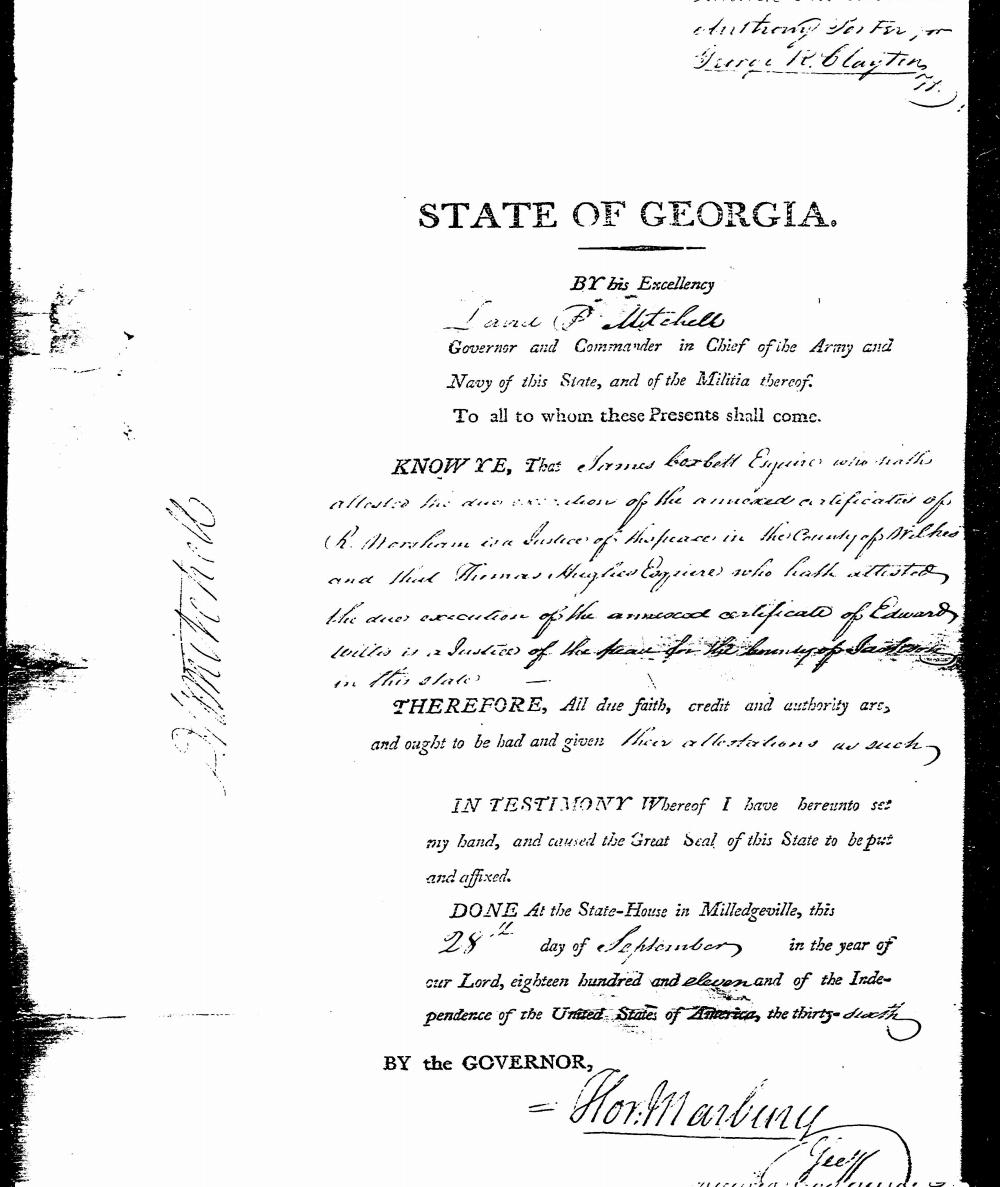 Anthony Porter for
George R. Clayton
STATE OF GEORGIA.
BY his Excellency
David B Mitchell
Governor and Commander in Chief of the Army and
Navy of this State, and of the Militia thereof.
To all to whom these Presents shall come.
KNOW YE, That James Corbett Esquire who hath
attested the due execution of the annexed certificates of
R. Worsham is a Justice of the peace in the County of Wilkes
and that Thomas Hughes Esquire who hath attested
the due execution of the annexed certificate of Edward
Willis is a Justice of the peace for the County of
in this state
THEREFORE, All due faith, credit and authority are,
and ought to be had and given their attestations as such
IN TESTIMONY Whereof I have hereunto set
my hand, and caused the Great Seal of this State to be put
and affixed.
DONE At the State-House in Milledgeville, this
28th day of September in the year of
our Lord, eighteen hundred and eleven and of the Inde-
pendence of the United States of America, the thirty-sixth
BY the GOVERNOR,
Hor. Marbury
D B Mitchell